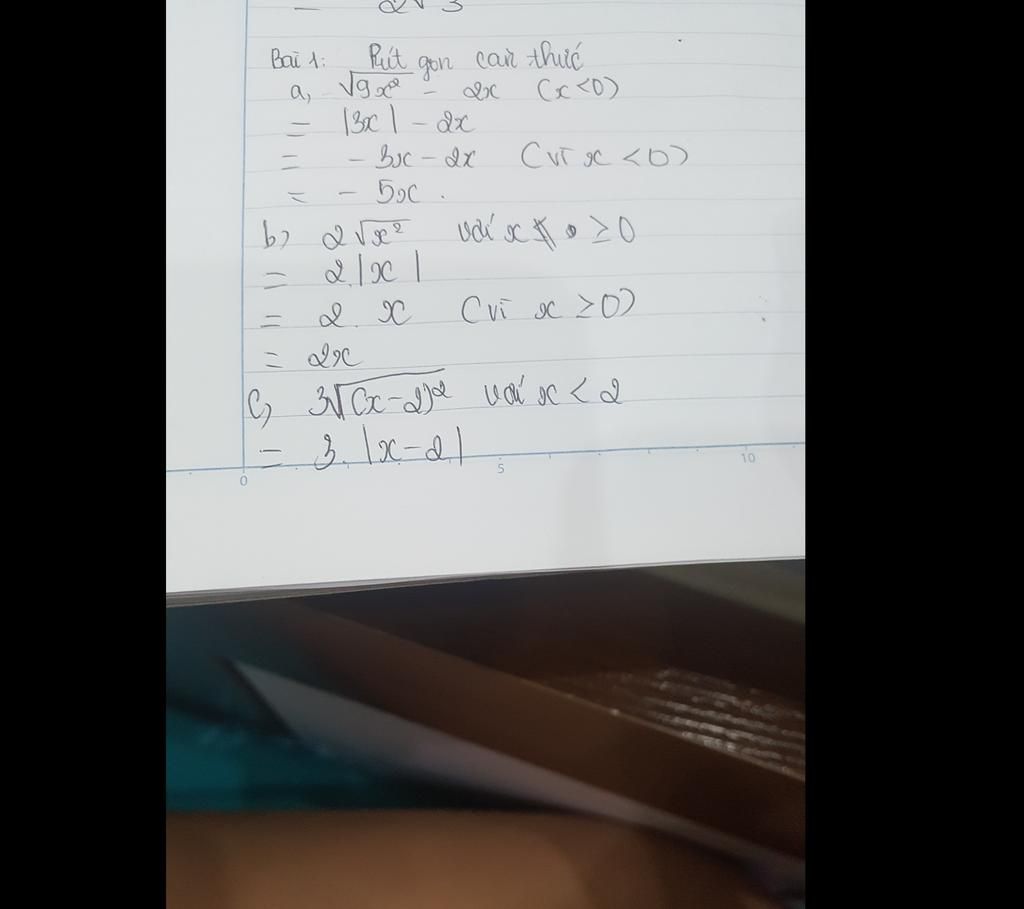 = 2√3
Bài 1: Rút gọn căn thức
a, √9x² - 2x (x<0)
= |3x| - 2x
= - 3x - 2x (vì x <0)
= - 5x.
b) 2√x² với x ≥0
= 2.|x|
= 2. x (vì x ≥0)
= 2x
c, 3√(x-2)² với x < 2
= 3. |x-2|
0 5 10